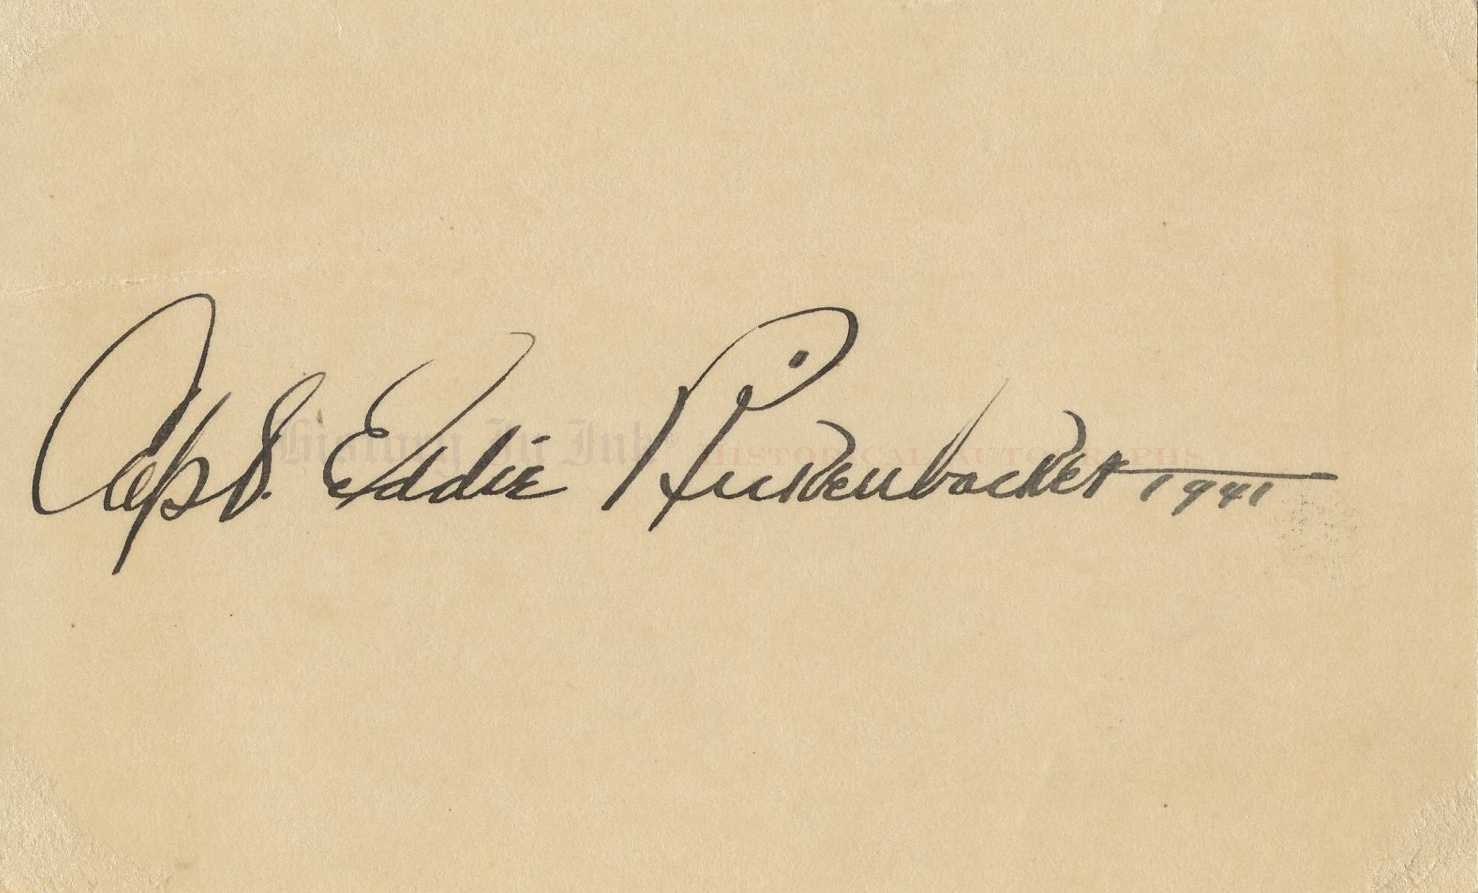 Capt. Eddie Rickenbacker 1941
History In Ink® HISTORICAL AUTOGRAPHS